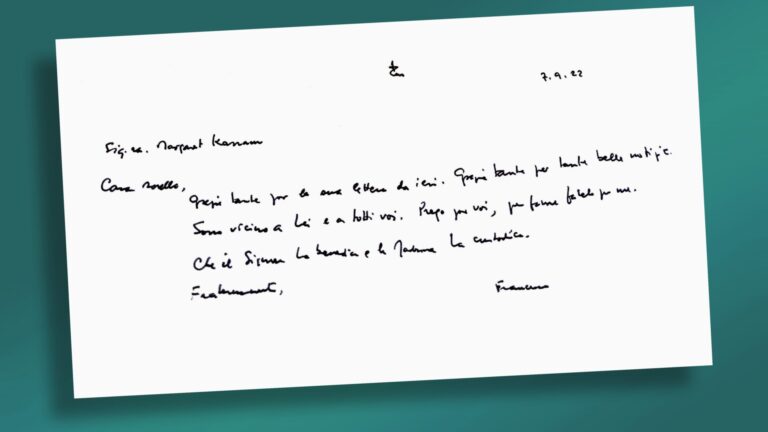 7.9.22
Sig.ra. Margaret Karram
Cara sorella,
grazie tante per la sua lettera da ieri. Grazie tante per tante belle notizie.
Sono vicino a Lei e a tutti voi. Prego per voi, per favore fatelo per me.
Che il Signore La benedica e la Madonna La custodisca.
Fraternamente,
Francesco